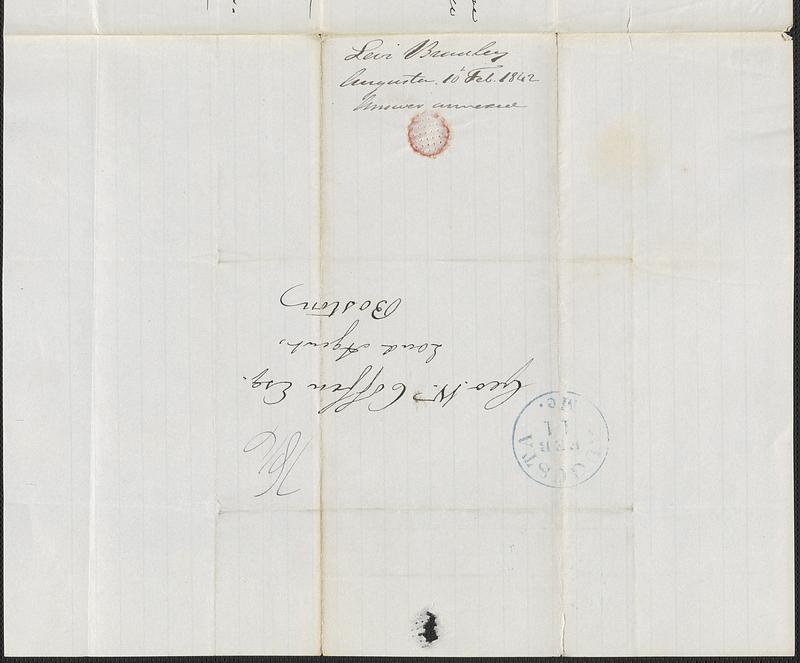 Levi Bradley
Augusta. 10 Feb. 1842
Answer annexed
Geo. W. Coffin Esq.
Land Agent,
Boston
AUGUSTA
Me.
FEB
11